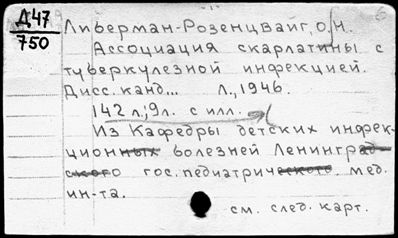 Д47
750
Либерман-Розенцвайг, О.Н.
Ассоциация скарлатины с
туберкулезной инфекцией.
Дисс. канд... Л., 1946.
142 л.; 9л. с илл.
Из Кафедры детских инфек-
ционных болезней Ленинград-
ского гос. педиатрического мед.
ин-та.
см. след. карт.